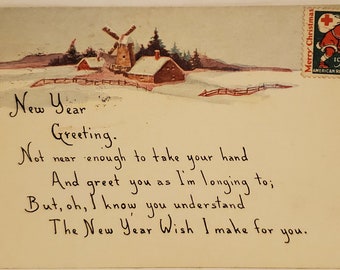 Merry Christmas
AMERICAN R
New Year
Greeting.
Not near enough to take your hand
And greet you as I'm longing to;
But, oh, I know you understand
The New Year Wish I make for you.